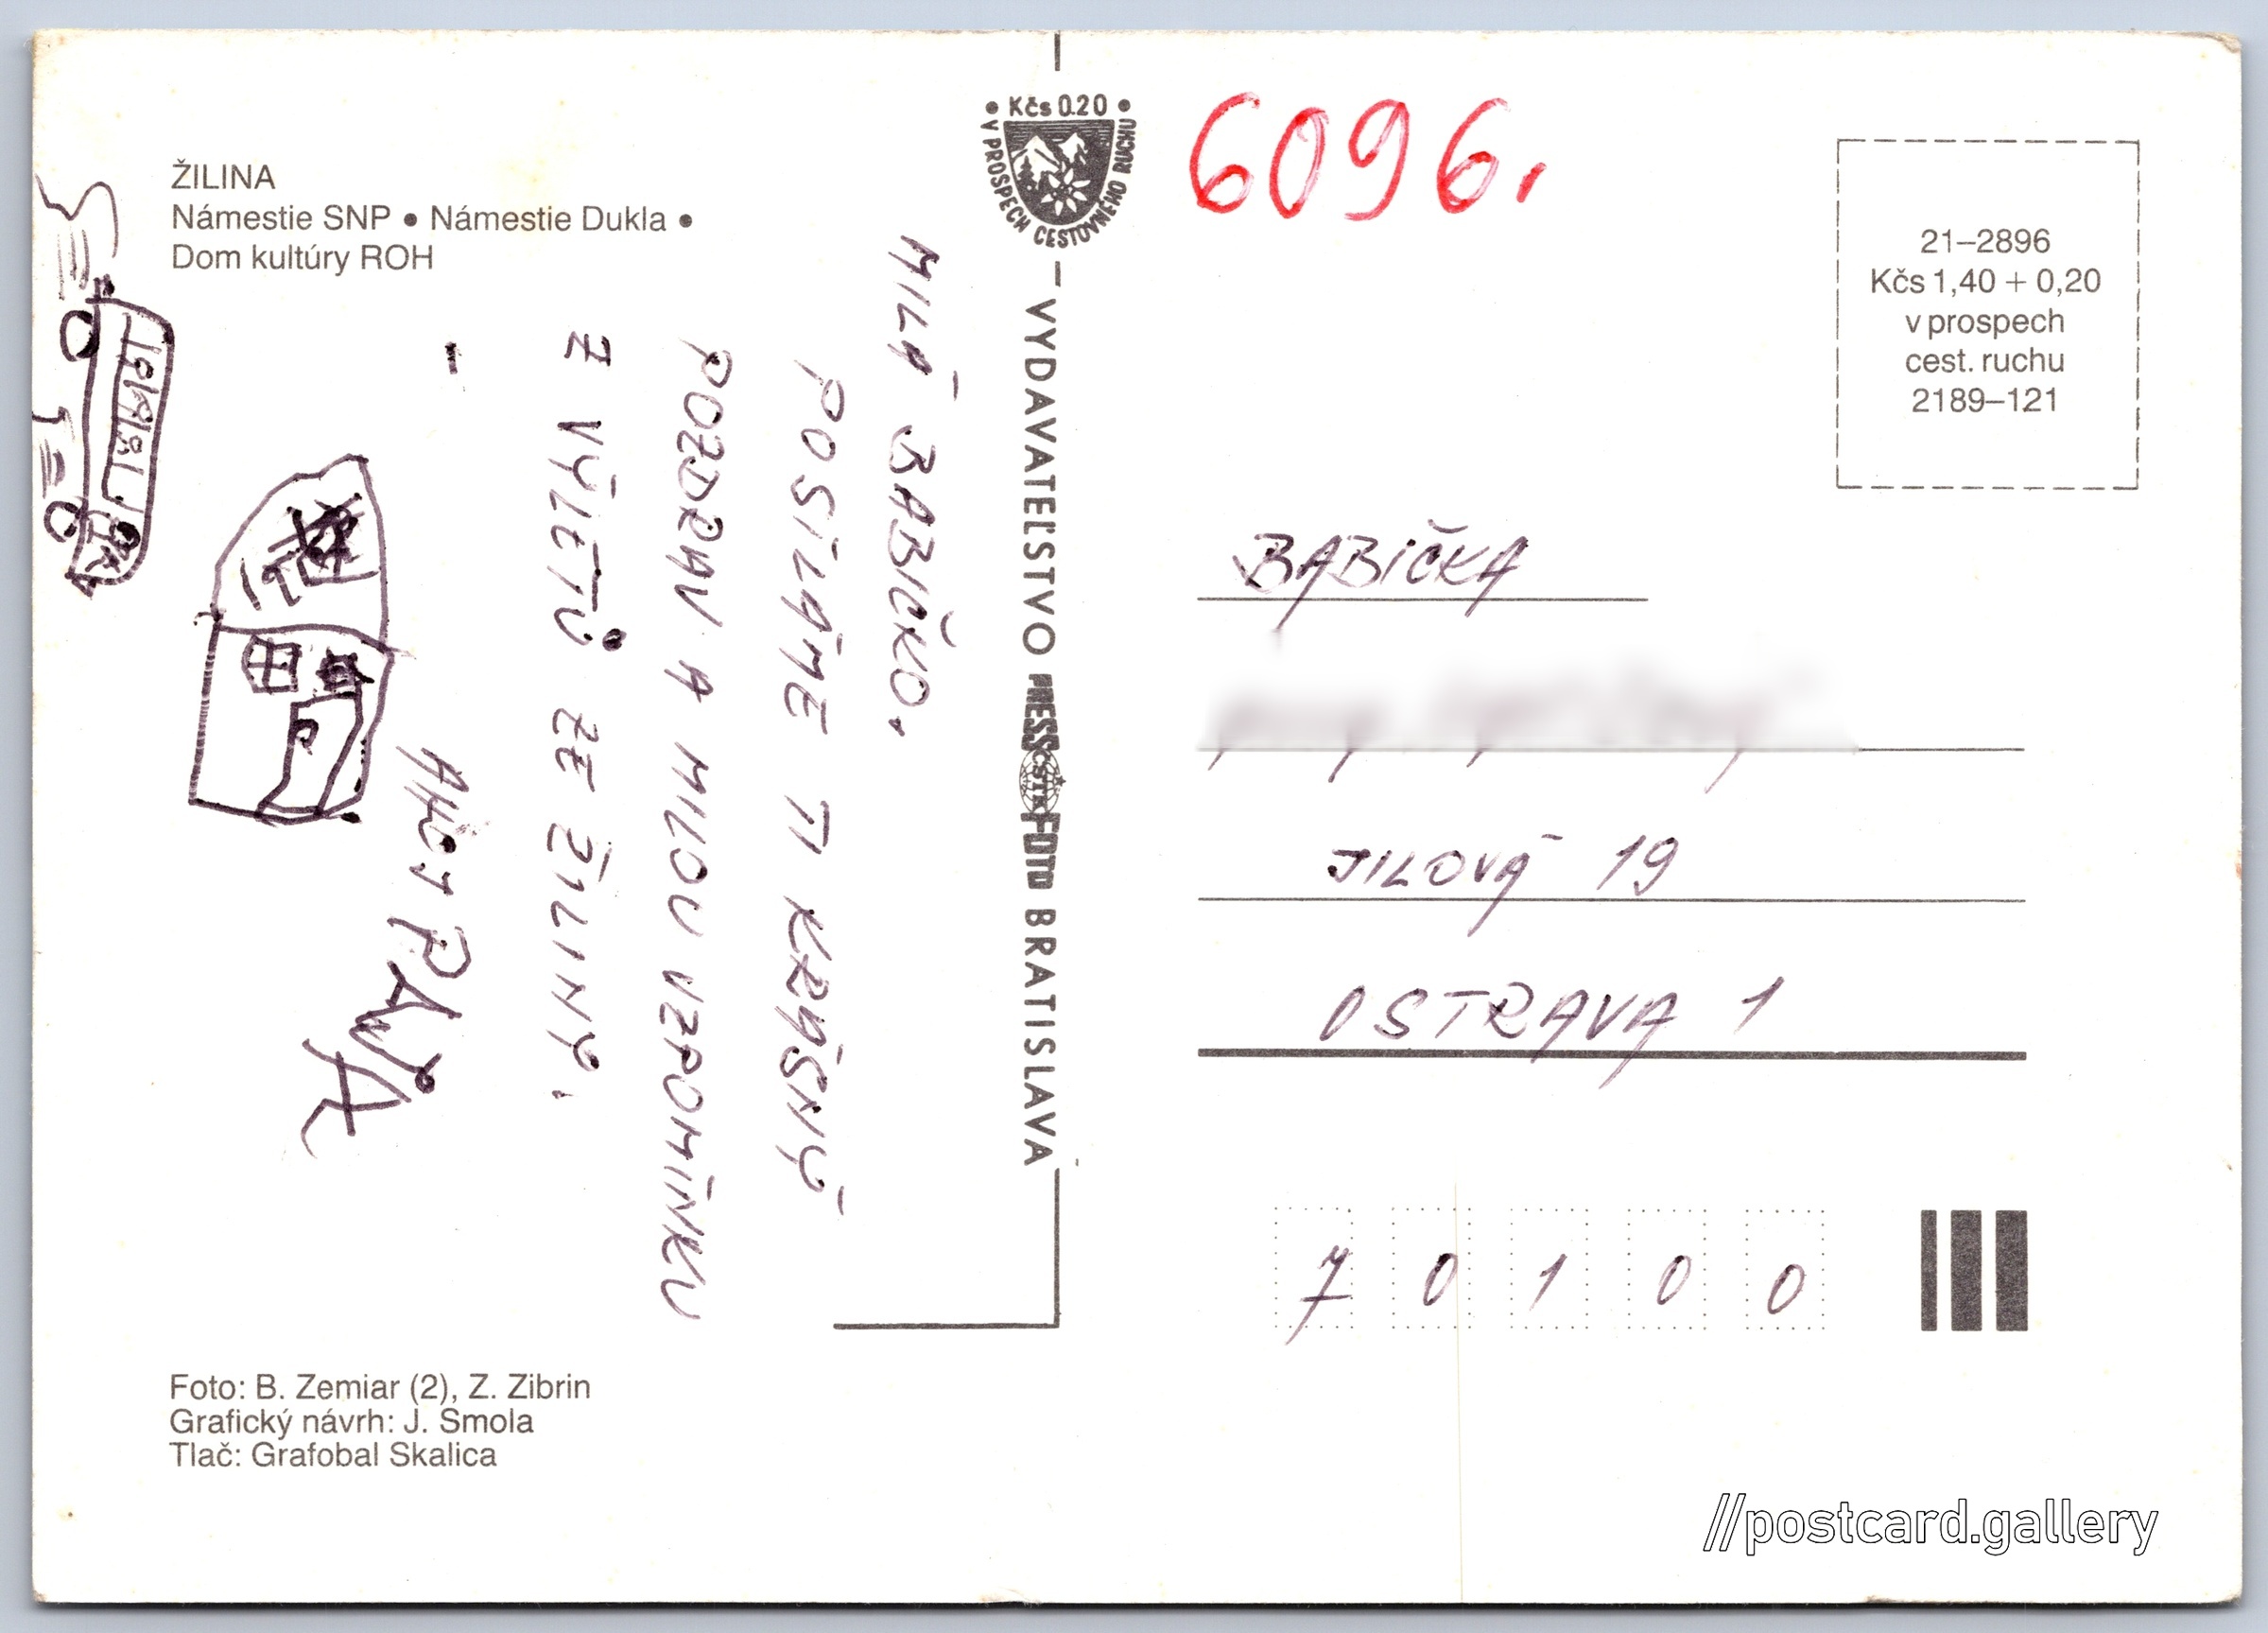 ŽILINA
Námestie SNP • Námestie Dukla •
Dom kultúry ROH
MILÁ BABIČKO.
POSÍLÁME TI KRÁSNÝ
POZDRAV A MILOU VZPOMÍNKU
Z VÝLETŮ ZE ŽILINY.
Foto: B. Zemiar (2), Z. Zibrin
Grafický návrh: J. Smola
Tlač: Grafobal Skalica
• Kčs 0.20 •
V PROSPECH CESTOVNÉHO RUCHU
VYDAVATEĽSTVO PRESSFOTO BRATISLAVA
ČSTK
6096.
21–2896
Kčs 1,40 + 0,20
v prospech
cest. ruchu
2189–121
BABIČKA
JILOVÁ 19
OSTRAVA 1
70100
//postcard.gallery